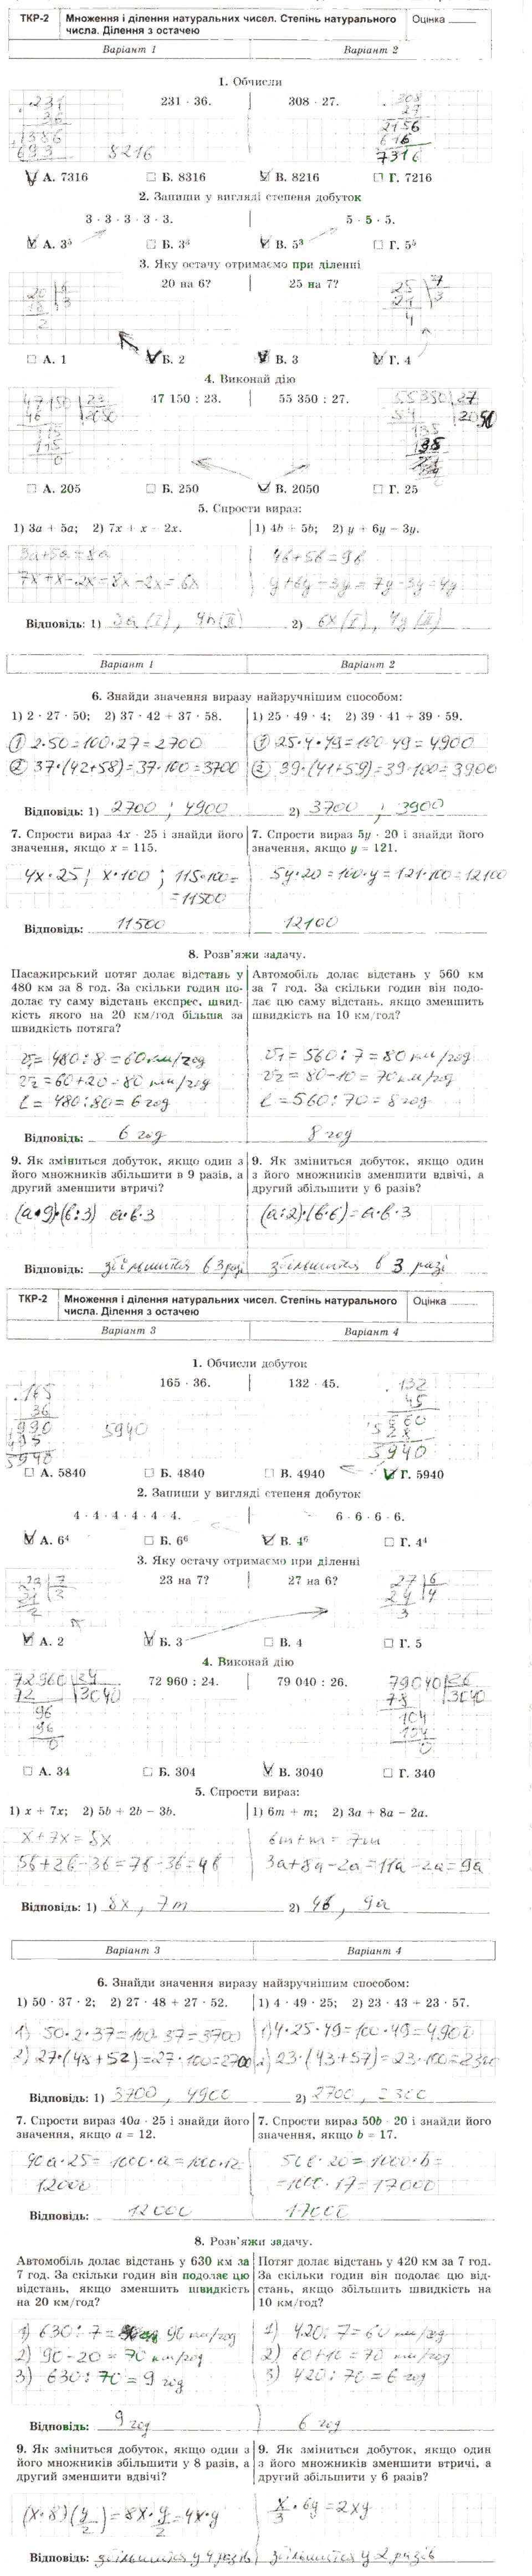 ТКР-2 Множення і ділення натуральних чисел. Степінь натурального числа. Ділення з остачею Оцінка
Варіант 1 Варіант 2
1. Обчисли
231 · 36. 308 · 27.
231
36
1386
693
8216
308
27
2156
616
7316
А. 7316 Б. 8316 В. 8216 Г. 7216
2. Запиши у вигляді степеня добуток
3 · 3 · 3 · 3 · 3. 5 · 5 · 5.
А. 3⁵ Б. 3⁶ В. 5³ Г. 5⁵
3. Яку остачу отримаємо при діленні
20 на 6? 25 на 7?
20 6
18 3
2
25 7
21 3
4
А. 1 Б. 2 В. 3 Г. 4
4. Виконай дію
47 150 : 23. 55 350 : 27.
47150 23
46 2050
115
115
0
55350 27
54 2050
135
135
А. 205 Б. 250 В. 2050 Г. 25
5. Спрости вираз:
1) 3a + 5a; 2) 7x + x − 2x. 1) 4b + 5b; 2) y + 6y − 3y.
3a+5a=8a 4b+5b=9b
7x+x-2x=8x-2x=6x y+6y-3y=7y-3y=4y
Відповідь: 1) 2) 6x (I), 4y (II)
Варіант 1 Варіант 2
6. Знайди значення виразу найзручнішим способом:
1) 2 · 27 · 50; 2) 37 · 42 + 37 · 58. 1) 25 · 49 · 4; 2) 39 · 41 + 39 · 59.
1 2·50=100·27=2700 1 25·4·49=100·49=4900
2 37·(42+58)=37·100=3700 2 39·(41+59)=39·100=3900
Відповідь: 1) 2700 ; 4900 2) 3700 ; 3900
7. Спрости вираз 4x · 25 і знайди його значення, якщо x = 115. 7. Спрости вираз 5y · 20 і знайди його значення, якщо y = 121.
4x·25; x·100; 115·100= 5y·20=100·y=121·100=12100
=11500
Відповідь: 11500 12100
8. Розв'яжи задачу.
Пасажирський потяг долає відстань у 480 км за 8 год. За скільки годин подолає ту саму відстань експрес, швидкість якого на 20 км/год більша за швидкість потяга?
Автомобіль долає відстань у 560 км за 7 год. За скільки годин він подолає цю саму відстань, якщо зменшить швидкість на 10 км/год?
v₁=480:8=60 км/год v₁=560:7=80 км/год
v₂=60+20=80 км/год v₂=80-10=70 км/год
t=480:80=6 год t=560:70=8 год
Відповідь: 6 год 8 год
9. Як зміниться добуток, якщо один з його множників збільшити в 9 разів, а другий зменшити втричі?
9. Як зміниться добуток, якщо один з його множників зменшити вдвічі, а другий збільшити у 6 разів?
(a·9)·(b:3) a·b·3 (a:2)·(b·6)=a·b·3
Відповідь: збільшится в 3 разі збільшится в 3 разі
ТКР-2 Множення і ділення натуральних чисел. Степінь натурального числа. Ділення з остачею Оцінка
Варіант 3 Варіант 4
1. Обчисли добуток
165 · 36. 132 · 45.
165
36
990
495
5940
5940
132
45
528
5940
А. 5840 Б. 4840 В. 4940 Г. 5940
2. Запиши у вигляді степеня добуток
4 · 4 · 4 · 4 · 4 · 4. 6 · 6 · 6 · 6.
А. 6⁴ Б. 6⁶ В. 4⁶ Г. 4⁴
3. Яку остачу отримаємо при діленні
23 на 7? 27 на 6?
23 7
21 3
2
27 6
24 4
3
А. 2 Б. 3 В. 4 Г. 5
4. Виконай дію
72 960 : 24. 79 040 : 26.
72960 24
72 3040
96
96
0
79040 26
78 3040
104
104
0
А. 34 Б. 304 В. 3040 Г. 340
5. Спрости вираз:
1) x + 7x; 2) 5b + 2b − 3b. 1) 6m + m; 2) 3a + 8a − 2a.
x+7x=8x 6m+m=7m
5b+2b-3b=7b-3b=4b 3a+8a-2a=11a-2a=9a
Відповідь: 1) 8x, 7m 2) 4b, 9a
Варіант 3 Варіант 4
6. Знайди значення виразу найзручнішим способом:
1) 50 · 37 · 2; 2) 27 · 48 + 27 · 52. 1) 4 · 49 · 25; 2) 23 · 43 + 23 · 57.
1) 50·2·37=100·37=3700 1) 4·25·49=100·49=4900
2) 27·(48+52)=27·100=2700 2) 23·(43+57)=23·100=2300
Відповідь: 1) 3700, 4900 2) 2700, 2300
7. Спрости вираз 40a · 25 і знайди його значення, якщо a = 12. 7. Спрости вираз 50b · 20 і знайди його значення, якщо b = 17.
40a·25=1000·a=1000·12 50b·20=1000·b=
12000 =1000·17=17000
Відповідь: 12000 17000
8. Розв'яжи задачу.
Автомобіль долає відстань у 630 км за 7 год. За скільки годин він подолає цю відстань, якщо зменшить швидкість на 20 км/год?
Потяг долає відстань у 420 км за 7 год. За скільки годин він подолає цю відстань, якщо збільшить швидкість на 10 км/год?
1) 630:7= 90 км/год 1) 420:7=60 км/год
2) 90-20=70 км/год 2) 60+10=70 км/год
3) 630:70=9 год 3) 420:70=6 год
Відповідь: 9 год 6 год
9. Як зміниться добуток, якщо один з його множників збільшити у 8 разів, а другий зменшити вдвічі?
9. Як зміниться добуток, якщо один з його множників зменшити втричі, а другий збільшити у 6 разів?
(x·8)(y/2)=8x·y/2=4x·y x/3·6y=2xy
Відповідь: збільшится у 4 разів збільшится у 2 разів